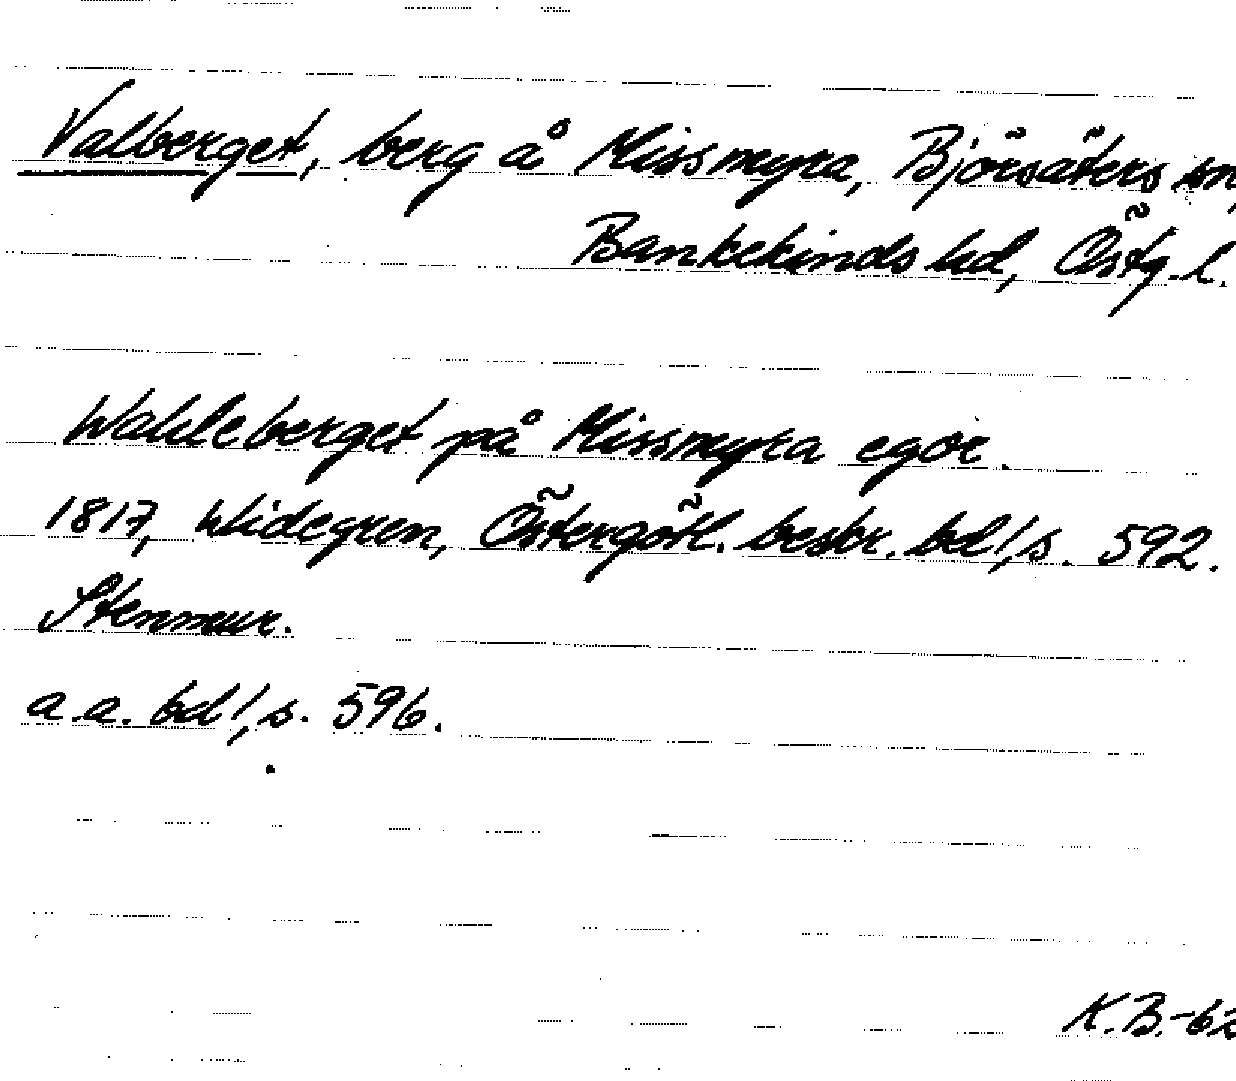 Valberget, berg å Missmyra, Björsäters sn,
Bankekinds hd, Östg. l.
Wahleberget på Missmyra egor.
1817, Widegren, Östergötl. beskr. bd 1, s. 592.
Stenmur.
a.a. bd 1, s. 596.
K.B.-62